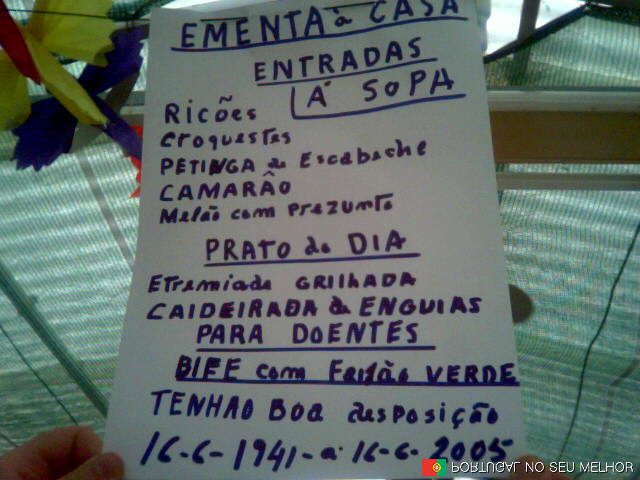 EMENTA à CASA
ENTRADAS
Á SOPA
Ricões
Croquestes
PETINGA de Escabeche
CAMARÂO
Melão com PREZUNTO
PRATO do DIA
Etremiada GRILHADA
CAIDEIRADA de ENGUIAS
PARA DOENTES
BIFE com Feijão VERDE
TENHAO BOA desposição
16-6-1941-a 16-6-2005
PORTUGAL NO SEU MELHOR